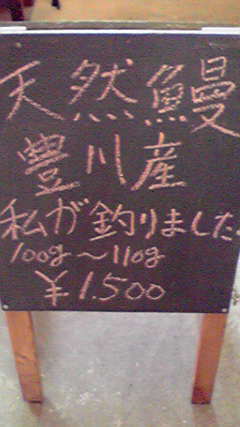 天然鰻
豊川産
私が釣りました。
100g〜110g
¥1.500